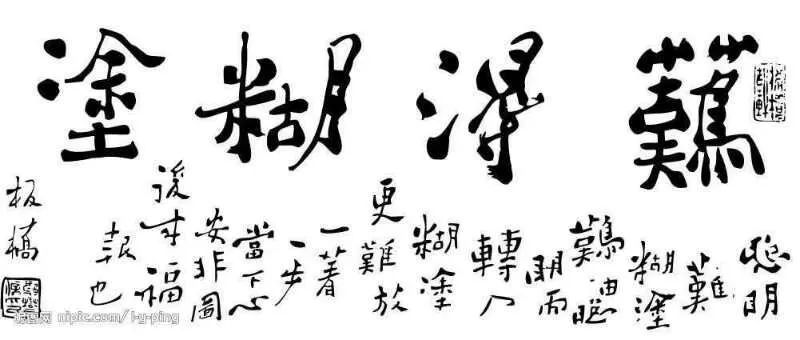 難得糊塗
聰明
難
糊塗
難由聰
明而
轉入
糊塗
更難放
一著
一步
當下心
安非圖
後来福
報也
板橋
昵图网 nipic.com/l-y-ping